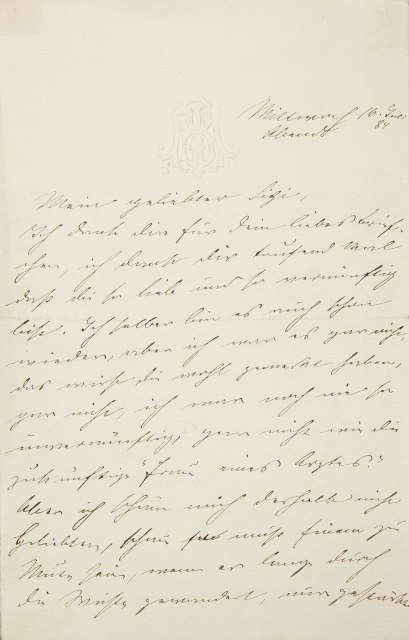 Mittwoch 16. Juli
Abends 84
Mein geliebter Sigi,
Ich danke dir für dein liebes Brief-
chen, ich danke dir tausend Mal
daß du so lieb und so vernünftig
bist. Ich selber bin es auch schon
wieder, aber ich war es gar nicht,
das wirst du wohl gemerkt haben,
gar nicht, ich war noch nie so
unvernünftig, gar nicht wie die
zukünftige "Frau eines Arztes."
Aber ich schäme mich deshalb nicht
Geliebter, schau muß einem zu
Mute sein, wenn er lange durch
die Wüste gewandert, nur